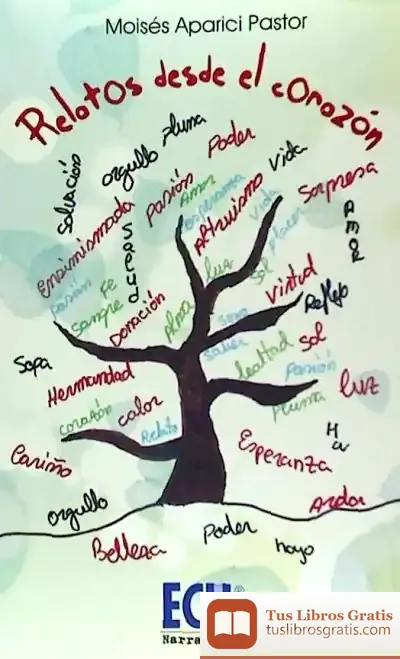 Moisés Aparici Pastor
Relatos desde el corazón
pluma
Poder
orgullo
vida
Salvación
Pasión
Amor
esperanza
Altruismo
vida
Sorpresa
Ensimismada
placer
AMOR
Pasión
fe
luz
Sol
Virtud
sangre
Donación
Alma
Reflejo
Sopa
saber
lealtad
Sol
Hermandad
Pasión
luz
corazón
calor
pluma
Relato
Cariño
Esperanza
orgullo
Poder
Ardor
Belleza
hoyo
ECU®
Narra
Tus Libros Gratis
tuslibrosgratis.com